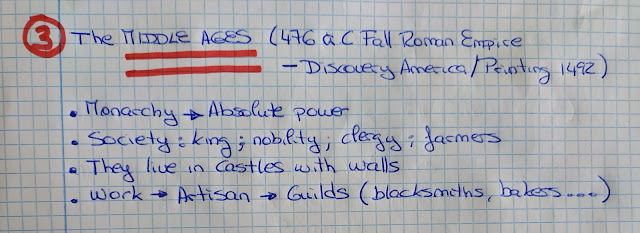 3 The MIDDLE AGES (476 a.C Fall Roman Empire
– Discovery America/Printing 1492)
• Monarchy → Absolute power
• Society: king; nobility; clergy; farmers
• They live in castles with walls
• Work → Artisan → Guilds (blacksmiths, bakess....)